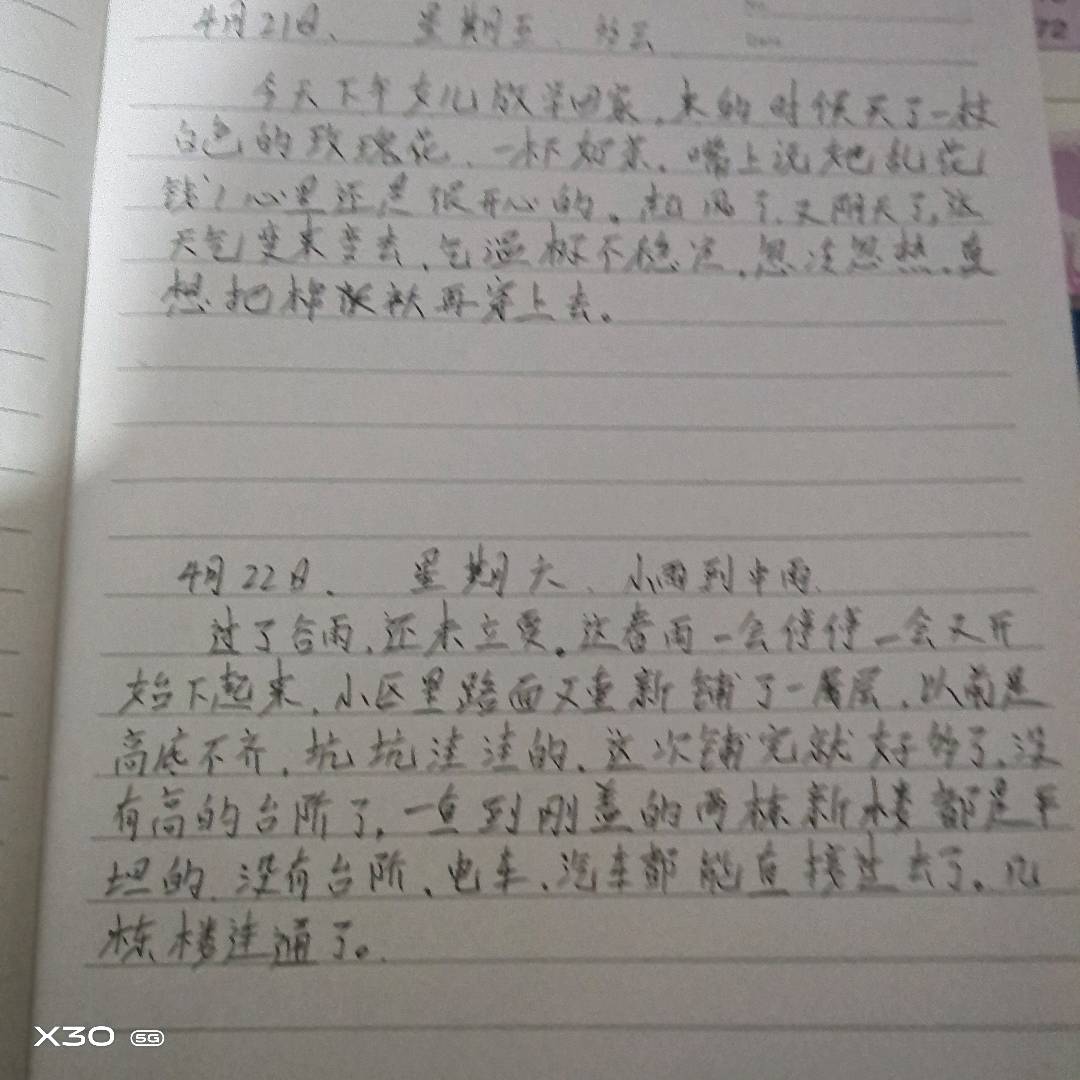 4月21日、 星期五、多云
No.
Date
72
今天下午女儿放学回家,来的时候买了一枝
白色的玫瑰花,一杯奶茶。嘴上说她乱花
钱,心里还是很开心的。刮风了,又阴天了,这
天气变来变去,气温极不稳定,忽冷忽热,真
想把棉袄再穿上去。
4月22日、 星期六、小雨到中雨、
过了谷雨,还未立夏。这春雨一会停停一会又开
始下起来,小区里路面又重新铺了一层,以前是
高底不齐,坑坑洼洼的,这次铺完就好多了,没
有高的台阶了,一直到刚盖的两栋新楼都是平
坦的,没有台阶、电车、汽车都能直接过去了。几
栋楼连通了。
X30 5G